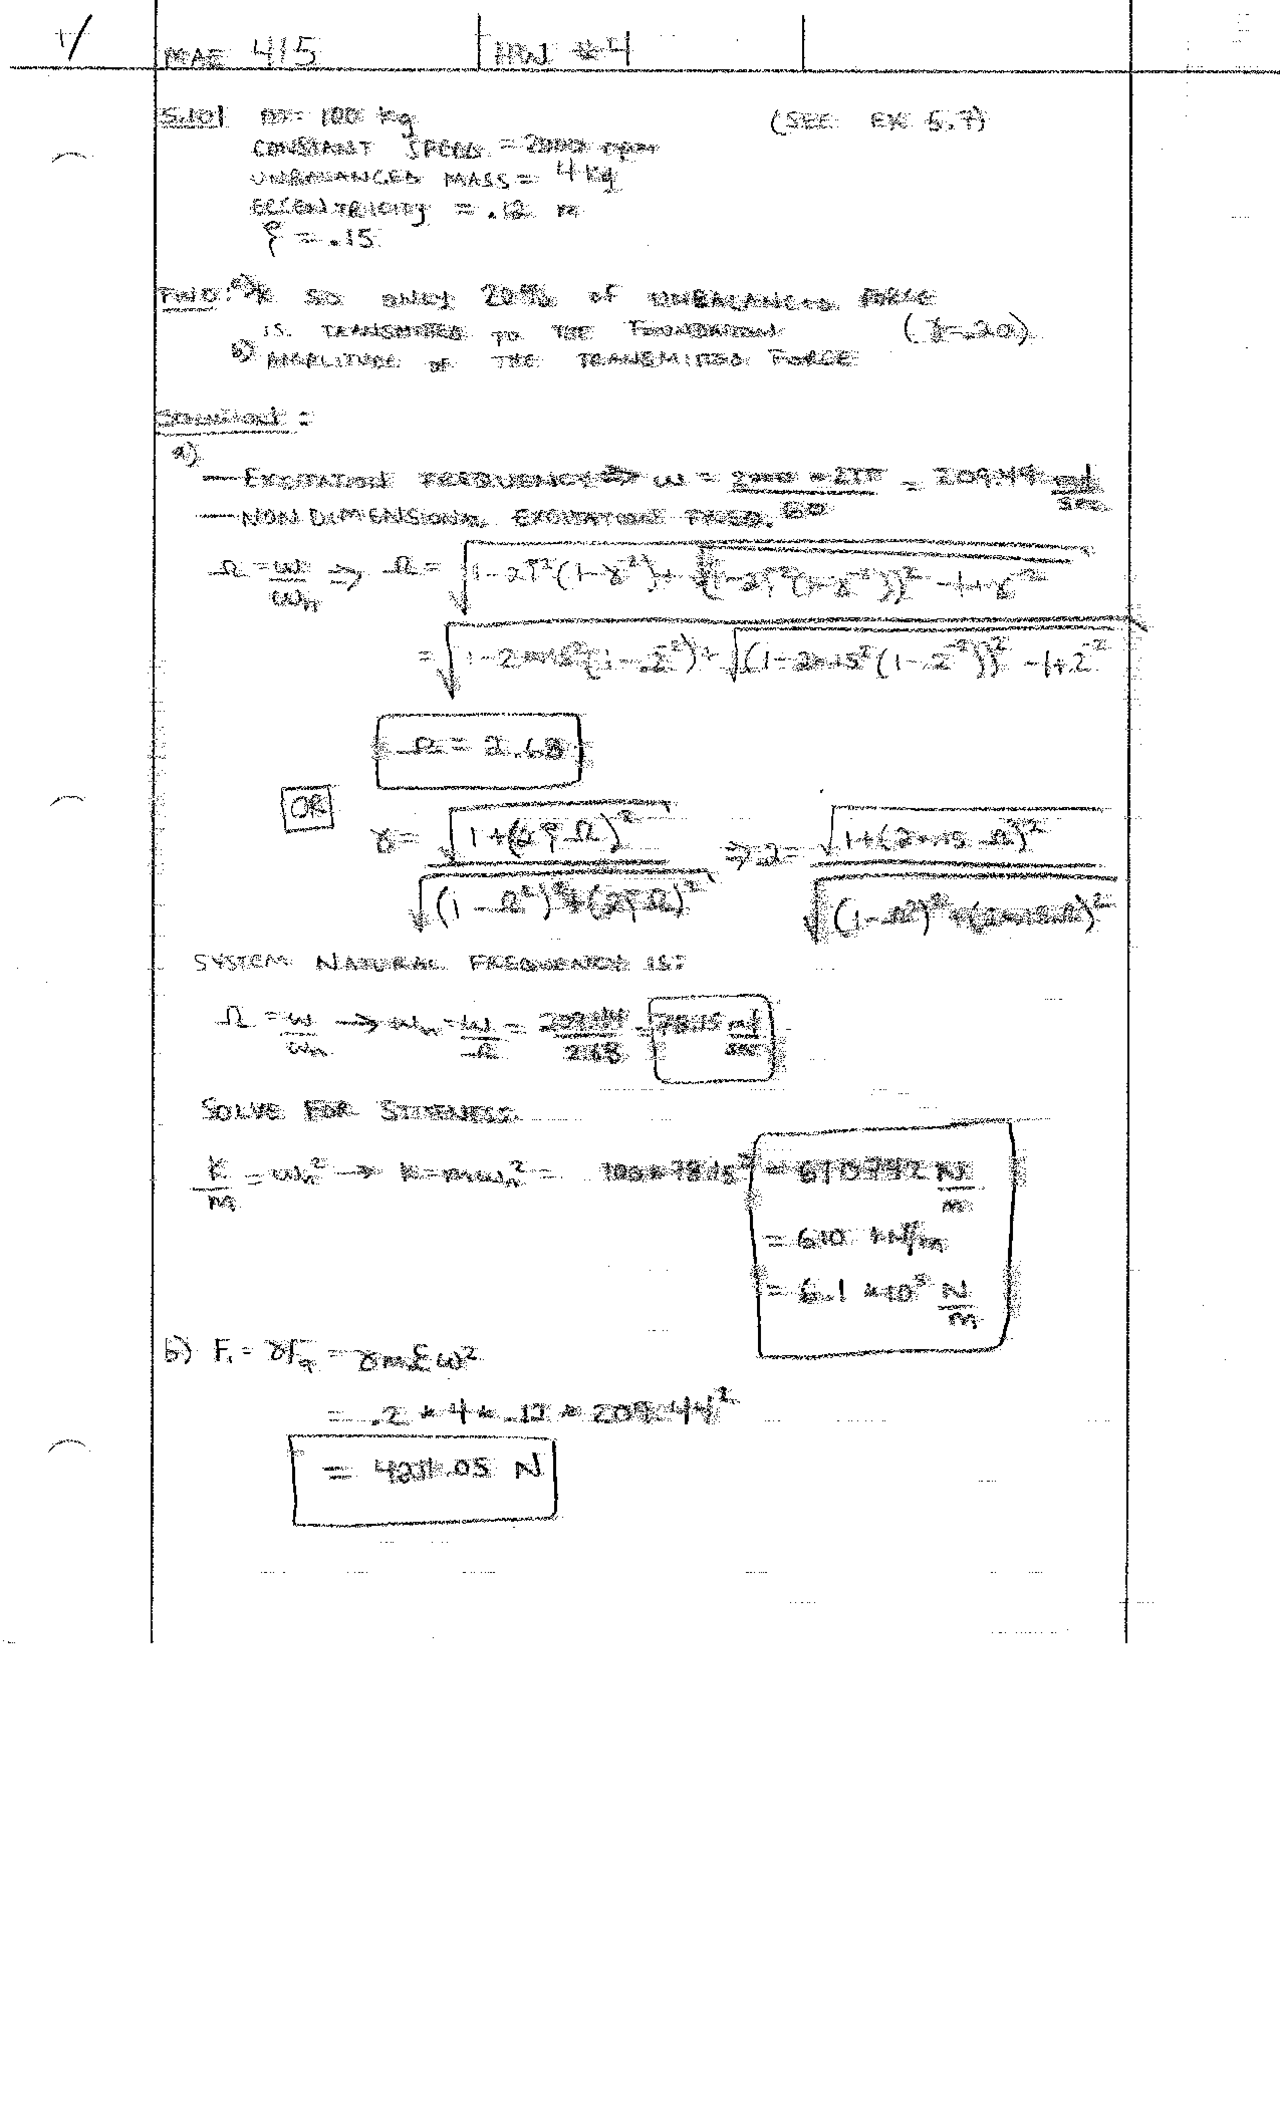 1/ MAE 415 HW #4
5.10) m= 100 kg (SEE EX 5.7)
CONSTANT SPEED = 2000 rpm
UNBALANCED MASS = 4 kg
ECCENTRICITY = .12 m
ζ = .15
FIND: a) K SO ONLY 20% of UNBALANCED FORCE
IS TRANSMITTED TO THE FOUNDATION (γ=.20)
b) AMPLITUDE OF THE TRANSMITTED FORCE
SOLUTION:
a)
— EXCITATION FREQUENCY => ω = 2000 * 2π / 60 = 209.44 rad/sec
— NON DIMENSIONAL EXCITATION FREQ.
Ω = ω/ωn => Ω = √(1-2ζ²(1-γ⁻²) + √((1-2ζ²(1-γ⁻²))² -1+γ⁻²
= √(1-2*.15²(1-.2⁻²) + √((1-2*.15²(1-.2⁻²))² -1+.2⁻²
Ω = 2.68
OR
γ = √(1+(2ζΩ)²) / √((1-Ω²)²+(2ζΩ)²) => .2 = √(1+(2*.15 Ω)²) / √((1-Ω²)²+(2*.15Ω)²)
SYSTEM NATURAL FREQUENCY IS:
Ω = ω/ωn → ωn = ω/Ω = 209.44/2.68 = 78.15 rad/sec
SOLVE FOR STIFFNESS.
K/m = ωn² → K = mωn² = 100*78.15² = 610742 N/m
= 610 kN/m
= 6.1 *10⁵ N/m
b) = γmεω²
= .2 * 4 * .12 * 209.44²
= N